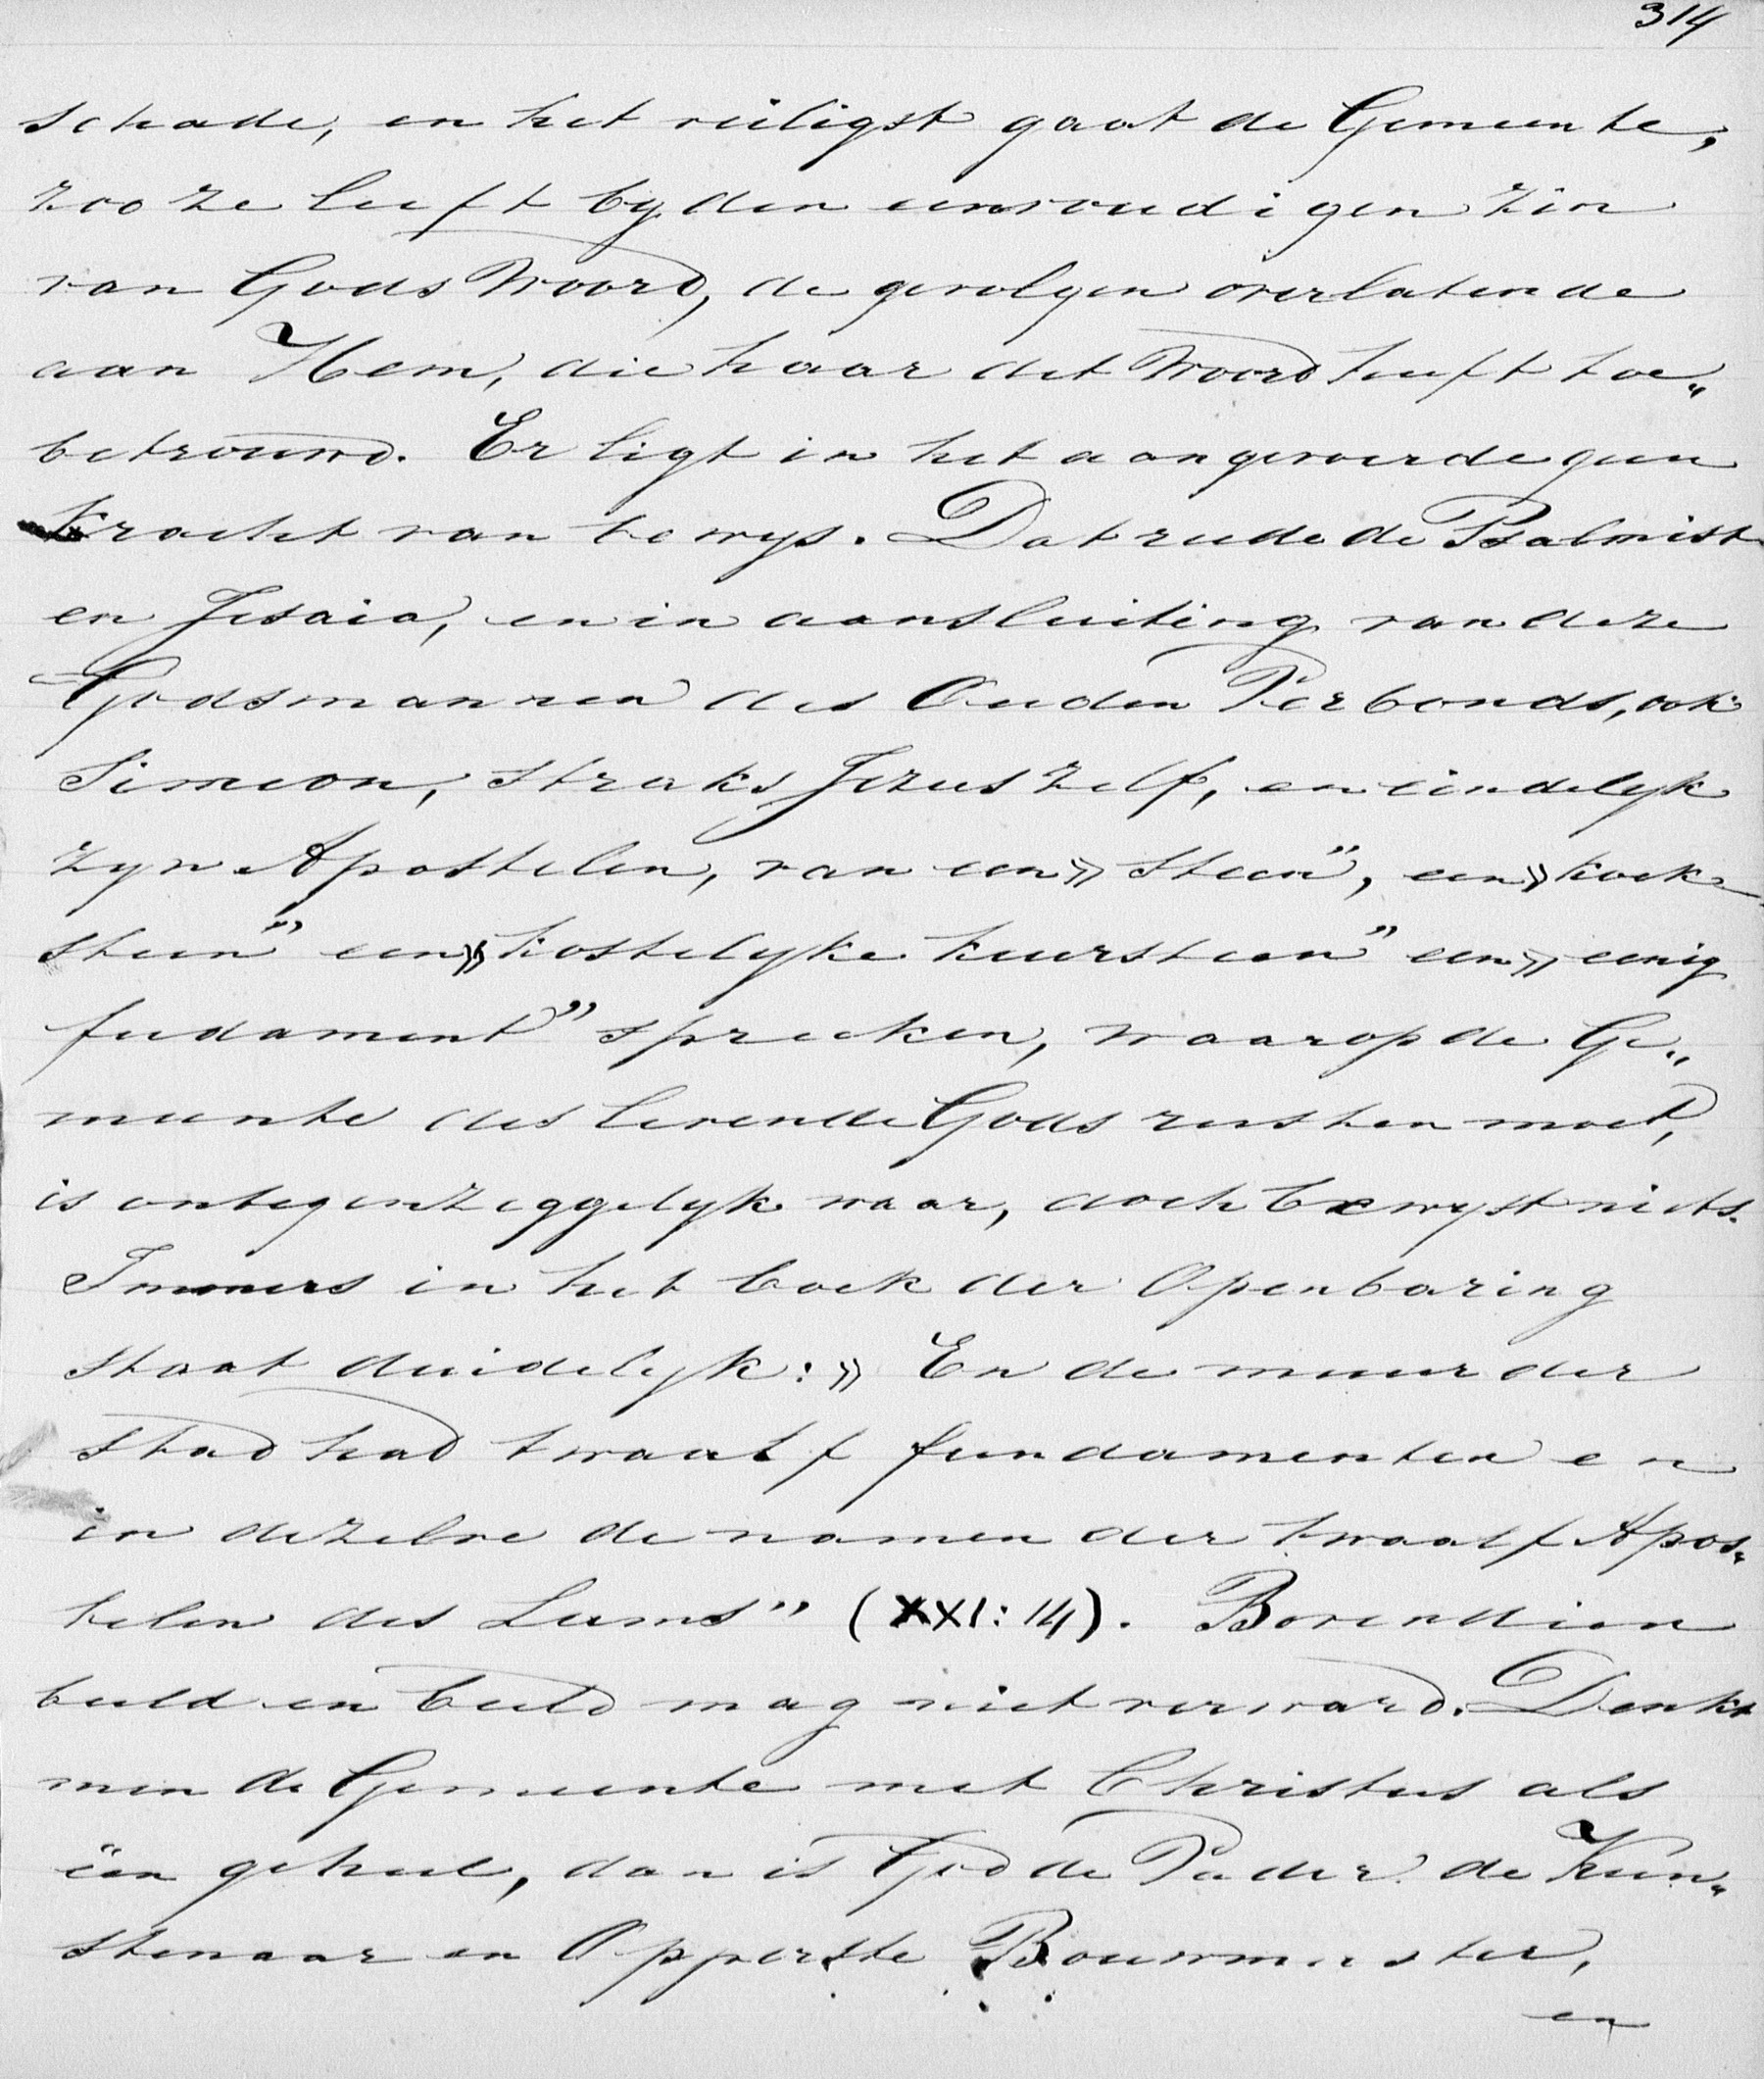 314
schade, en het veiligst gaat de Gemeente,
zoo ze leeft by den eenvoudigen zin
van Gods Woord, de gevolgen overlatende
aan Hem, die haar dit Woord heeft toe„
betrouwd. Er ligt in het aangevoerde geen
kracht van bewys. Dat reede de Psalmist
en Jesaia, en in aansluiting van deze
Godsmannen des Ouden Verbonds, ook
Simeon, straks Jezus zelf, en eindelyk
zyn Apostelen, van een » steen", een » hoek-
steen" een » kostelyke keursteen" een » eenig
fudament" spreeken, waarop de Ge„
meente des levende Gods rusten moet,
is ontegenzeggelyk waar, doch bewyst niets.
Immers in het boek der Openbaring
staat duidelyk: » En de muur der
stad had twaalf fundamenten en
in dezelve de namen der twaalf Apos„
telen des Lams" (XXI: 14). Bovendien
beeld en beeld mag niet verward. Denkt
men de Gemeente met Christus als
één geheel, dan is God de Vader de Kun„
stenaar en Opperste Bouwmeester,
en